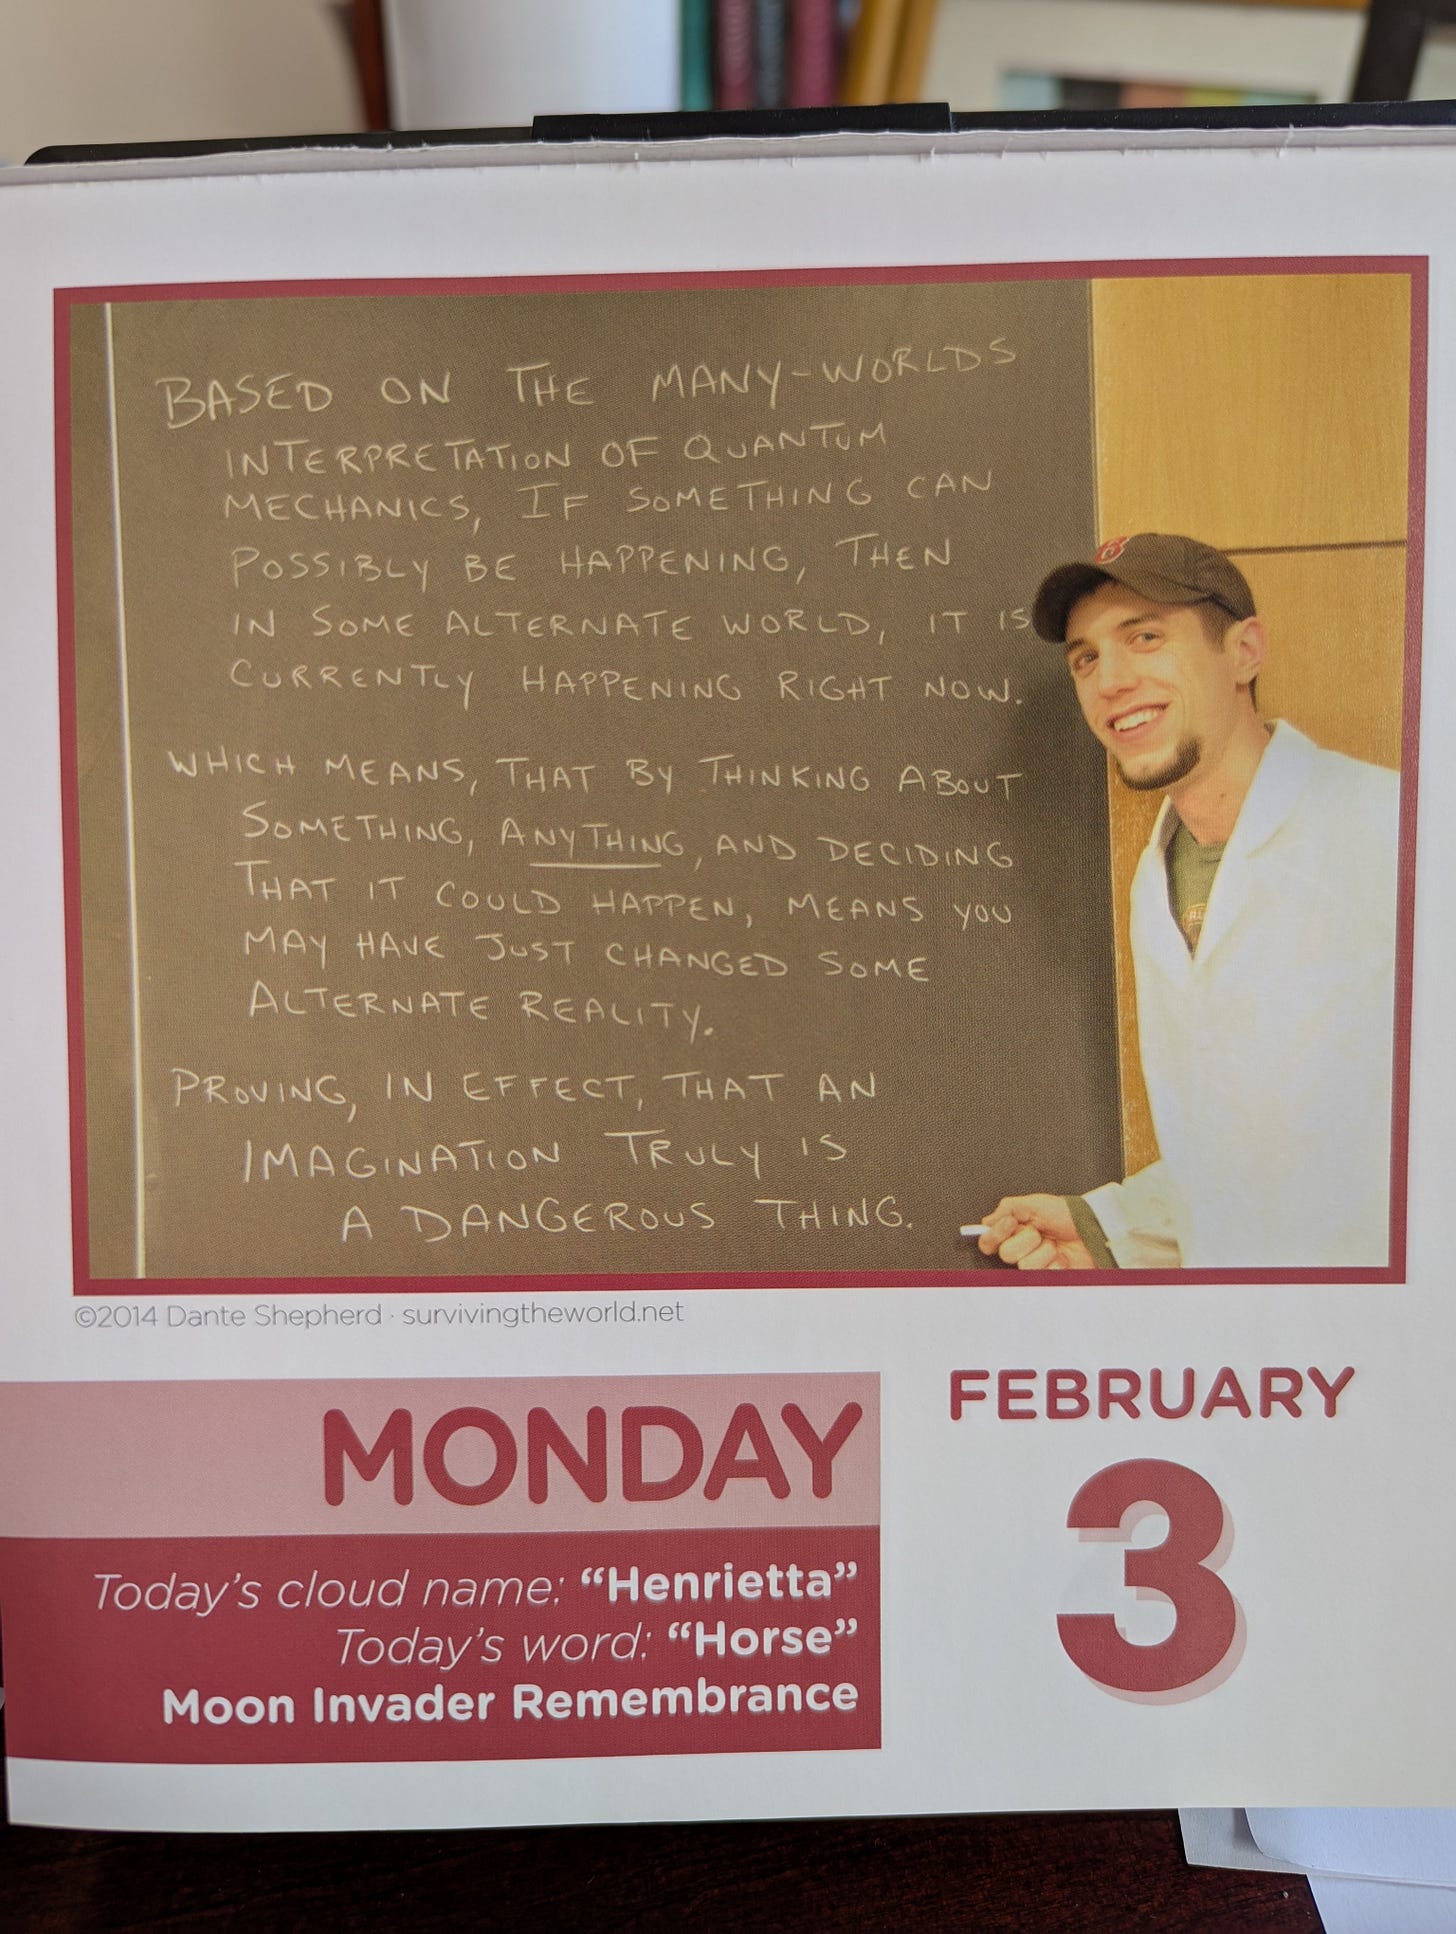 BASED ON THE MANY-WORLDS
INTERPRETATION OF QUANTUM
MECHANICS, IF SOMETHING CAN
POSSIBLY BE HAPPENING, THEN
IN SOME ALTERNATE WORLD, IT IS
CURRENTLY HAPPENING RIGHT NOW.
WHICH MEANS, THAT BY THINKING ABOUT
SOMETHING, ANYTHING, AND DECIDING
THAT IT COULD HAPPEN, MEANS YOU
MAY HAVE JUST CHANGED SOME
ALTERNATE REALITY.
PROVING, IN EFFECT, THAT AN
IMAGINATION TRULY IS
A DANGEROUS THING.
B
©2014 Dante Shepherd · survivingtheworld.net
MONDAY
Today's cloud name: “Henrietta”
Today's word: “Horse”
Moon Invader Remembrance
FEBRUARY
3